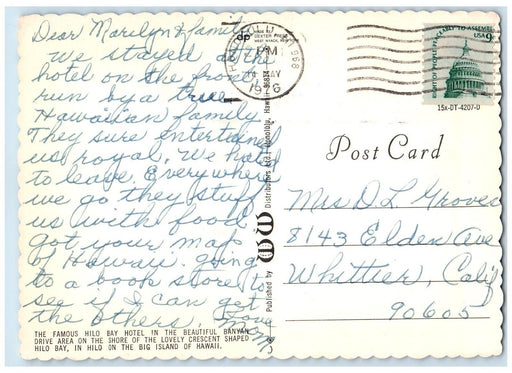 Dear Marilyn & family
We stayed at the
hotel on the front
run by a true
Hawaiian family.
They sure entertained
us royal. We hated
to leave. Everywhere
we go they stuff
us with food.
got your map
of Hawaii. going
to a book store to
see if I can get
the others. Love
Mom
THE FAMOUS HILO BAY HOTEL IN THE BEAUTIFUL BANYAN
DRIVE AREA ON THE SHORE OF THE LOVELY CRESCENT SHAPED
HILO BAY, IN HILO ON THE BIG ISLAND OF HAWAII.
dp
MADE BY
DEXTER PRESS
WEST NYACK, NEW YORK
Published by
Distributors Honolulu, Hawaii
HONOLULU
968
PM
MAY
1976
RIGHT OF PEOPLE PEACEABLY TO ASSEMBLE
USA 9c
15x-DT-4207-D
Post Card
Mrs D L Groves
8143 Elden Ave
Whittier, Calif
90605